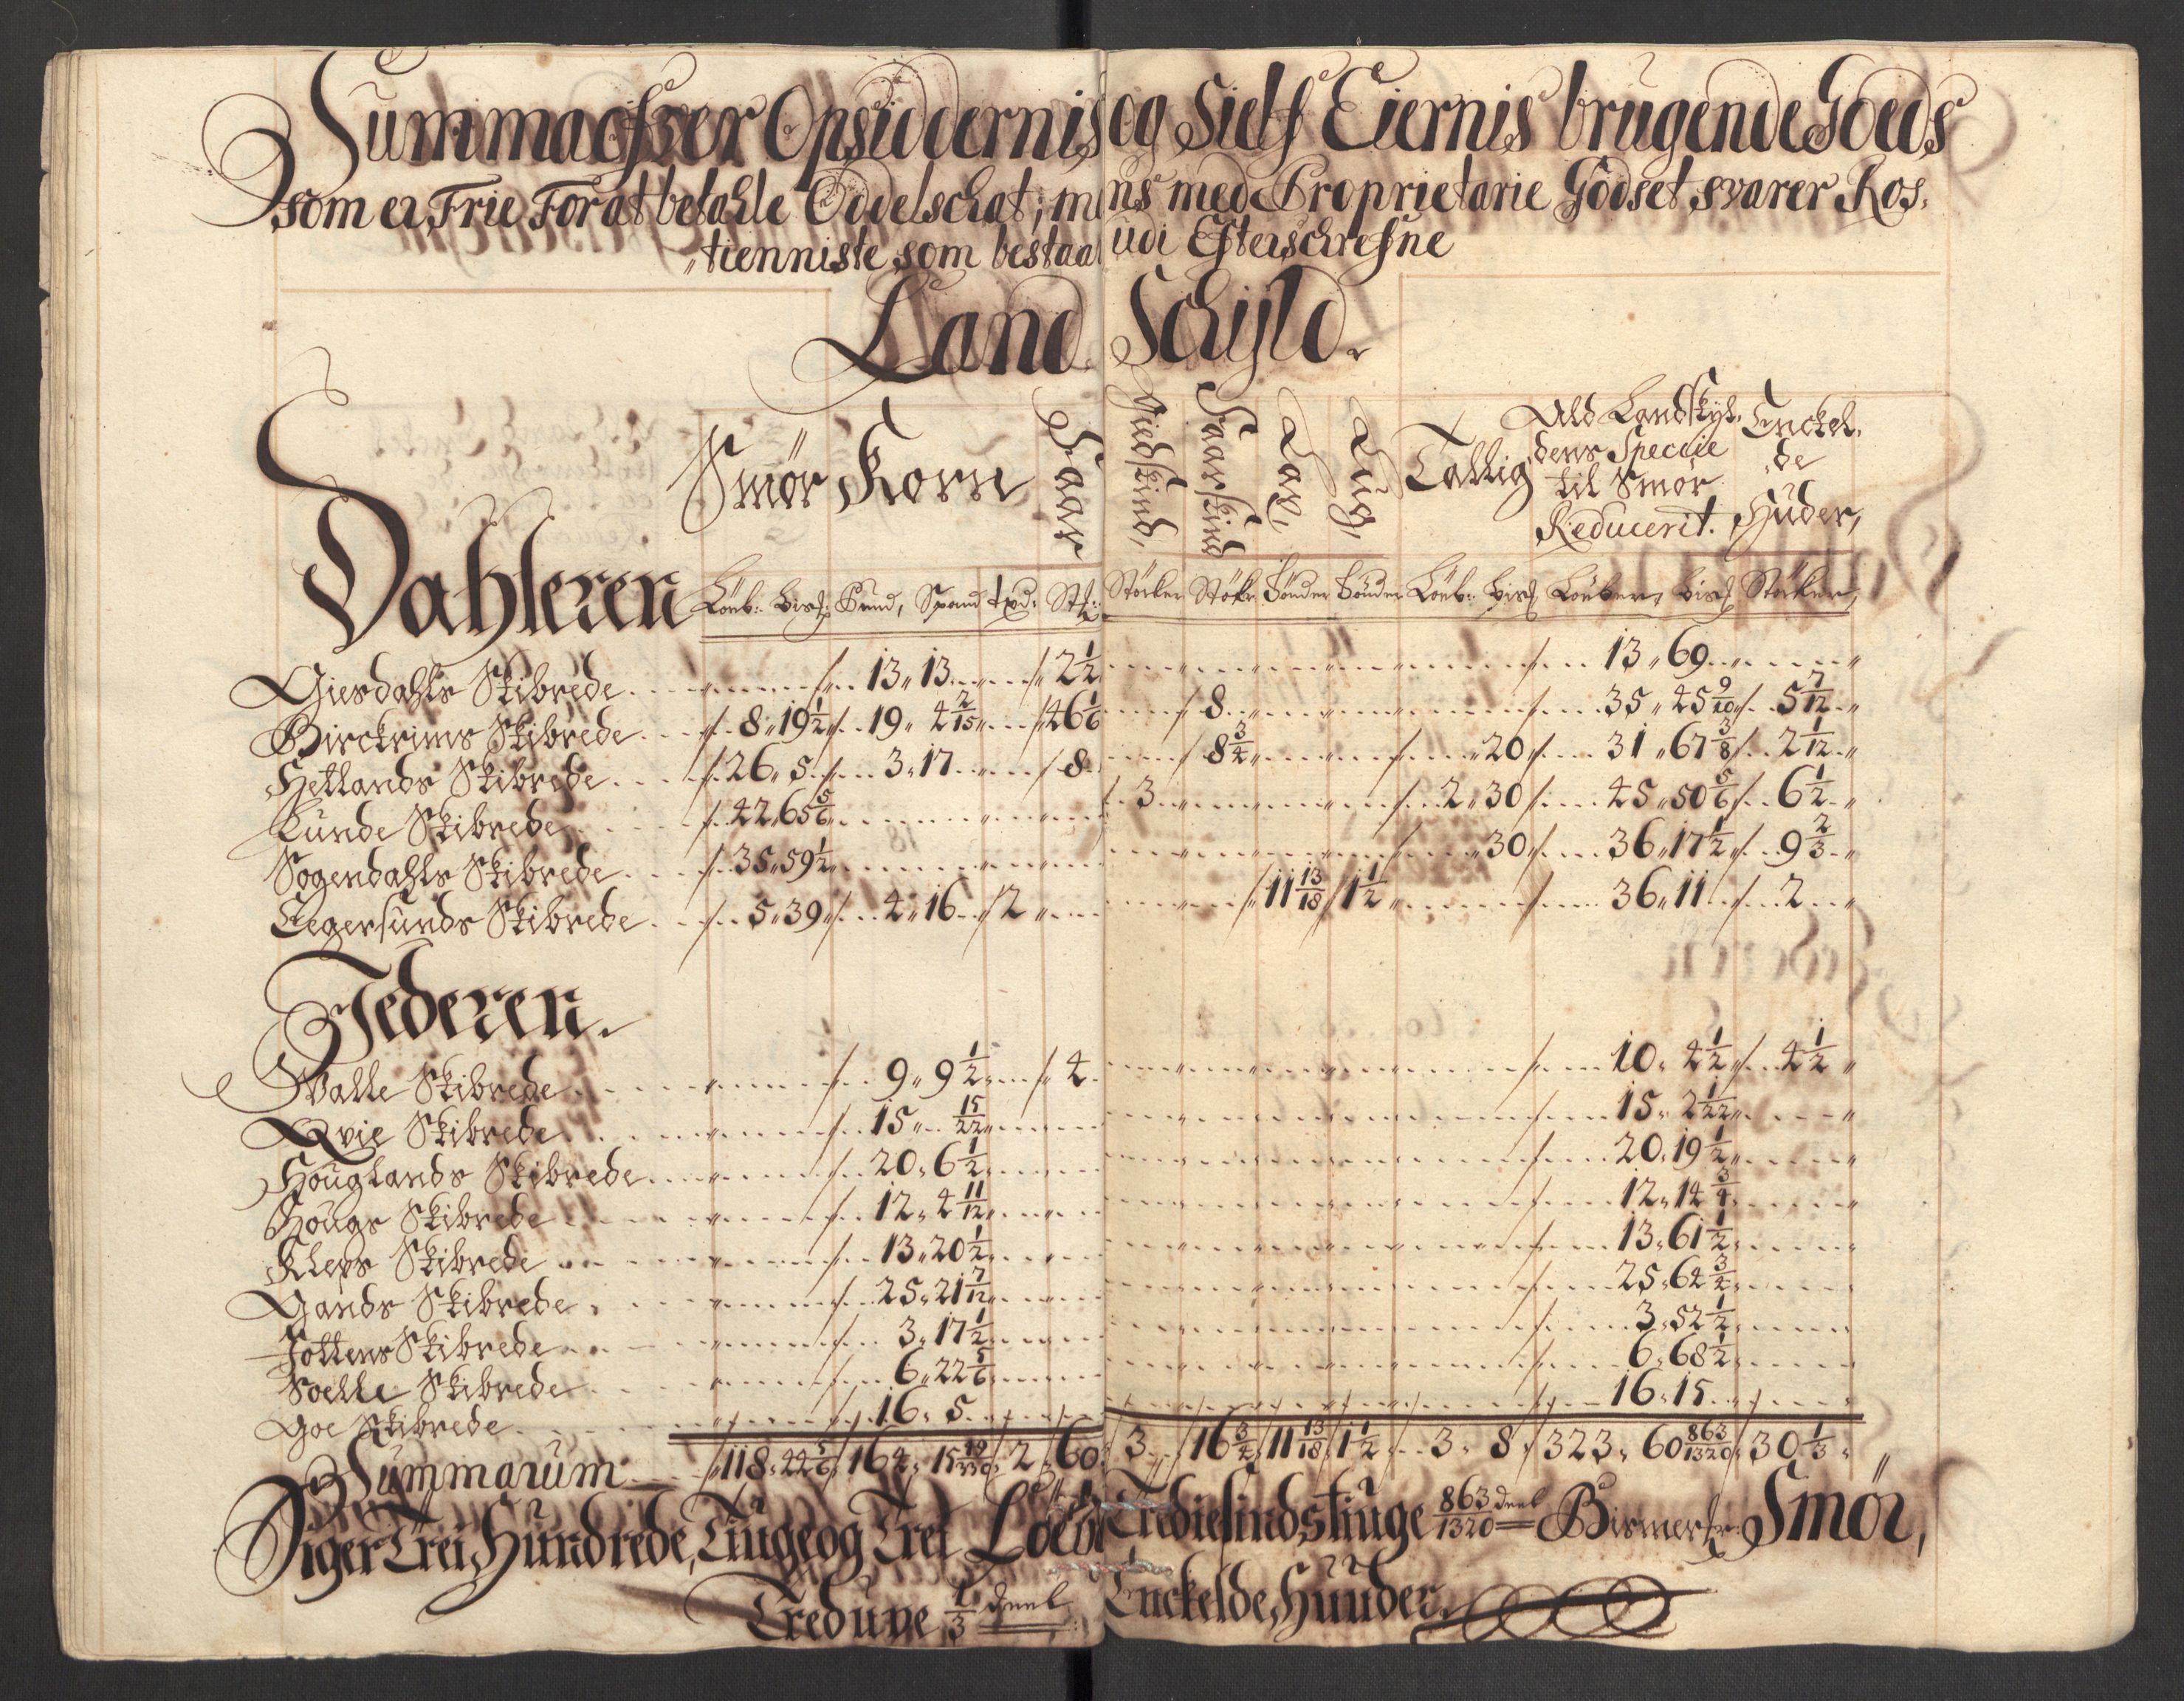 Summa ofver Opsiddernis og Sielf Eiernis brugende Goeds
som er Frie For at betahle Oddelschat; mens med Proprietarie Gödset svarer Ros,
tienniste som bestaar udi Efterschrefne
Land Schyld.
Dahleren
Smör Korn Haar Giedskind, Faarskind Lax, Tallig Ald Landskyl, dens Specie til Smör Reducerit. Enckel, de Huder,
Löeb: Bis: Pund, Spand Stk: Stöcker Stöckr Tönder Tönder Löeb: Bis Löeber, Bis Stöcker,
Giesdahls Skibrede 13 13 2 1/2 13 69
Birckrims Skibrede 8 19 1/2 19 4 2/15 46 1/6 8 35 45 9/10 5 7/12
Hetlands Skibrede 26 5 3 17 8 8 3/4 20 31 67 3/8 2 1/12
Lunde Skibrede 42 65 5/6 3 2 30 45 50 5/6 6 1/2
Sogendahls Skibrede 35 59 1/2 30 36 17 1/2 9 2/3
Eegersunds Skibrede 5 39 4 16 2 11 13/18 1 1/2 36 11 2
Jederen.
Walle Skibrede 9 9 1/2 4 10 4 1/2 4 1/2
Qvie Skibrede 15 15/22 15 2 1/22
Houglands Skibrede 20 6 1/2 20 19 1/2
Hougs Skibrede 12 4 11/12 12 14 3/4
Kleps Skibrede 13 20 1/2 13 61 1/2
Gands Skibrede 25 21 7/12 25 64 3/4
Jottens Skibrede 3 17 1/2 3 52 1/2
Soelle Skibrede 6 22 5/6 6 68 1/2
Goe Skibrede 16 5 16 15
Summarum 118 22 5/6 164 15 2 60 3 16 3/4 11 13/18 1 1/2 3 8 323 60 863/1320 30 1/3
Siger Trei Hundrede, Tiuge og Trei Trediesindstiuge 863/1320 deel Bismerpd: Smör,
Trediuve 1/3 deel Enckelde Huuder.